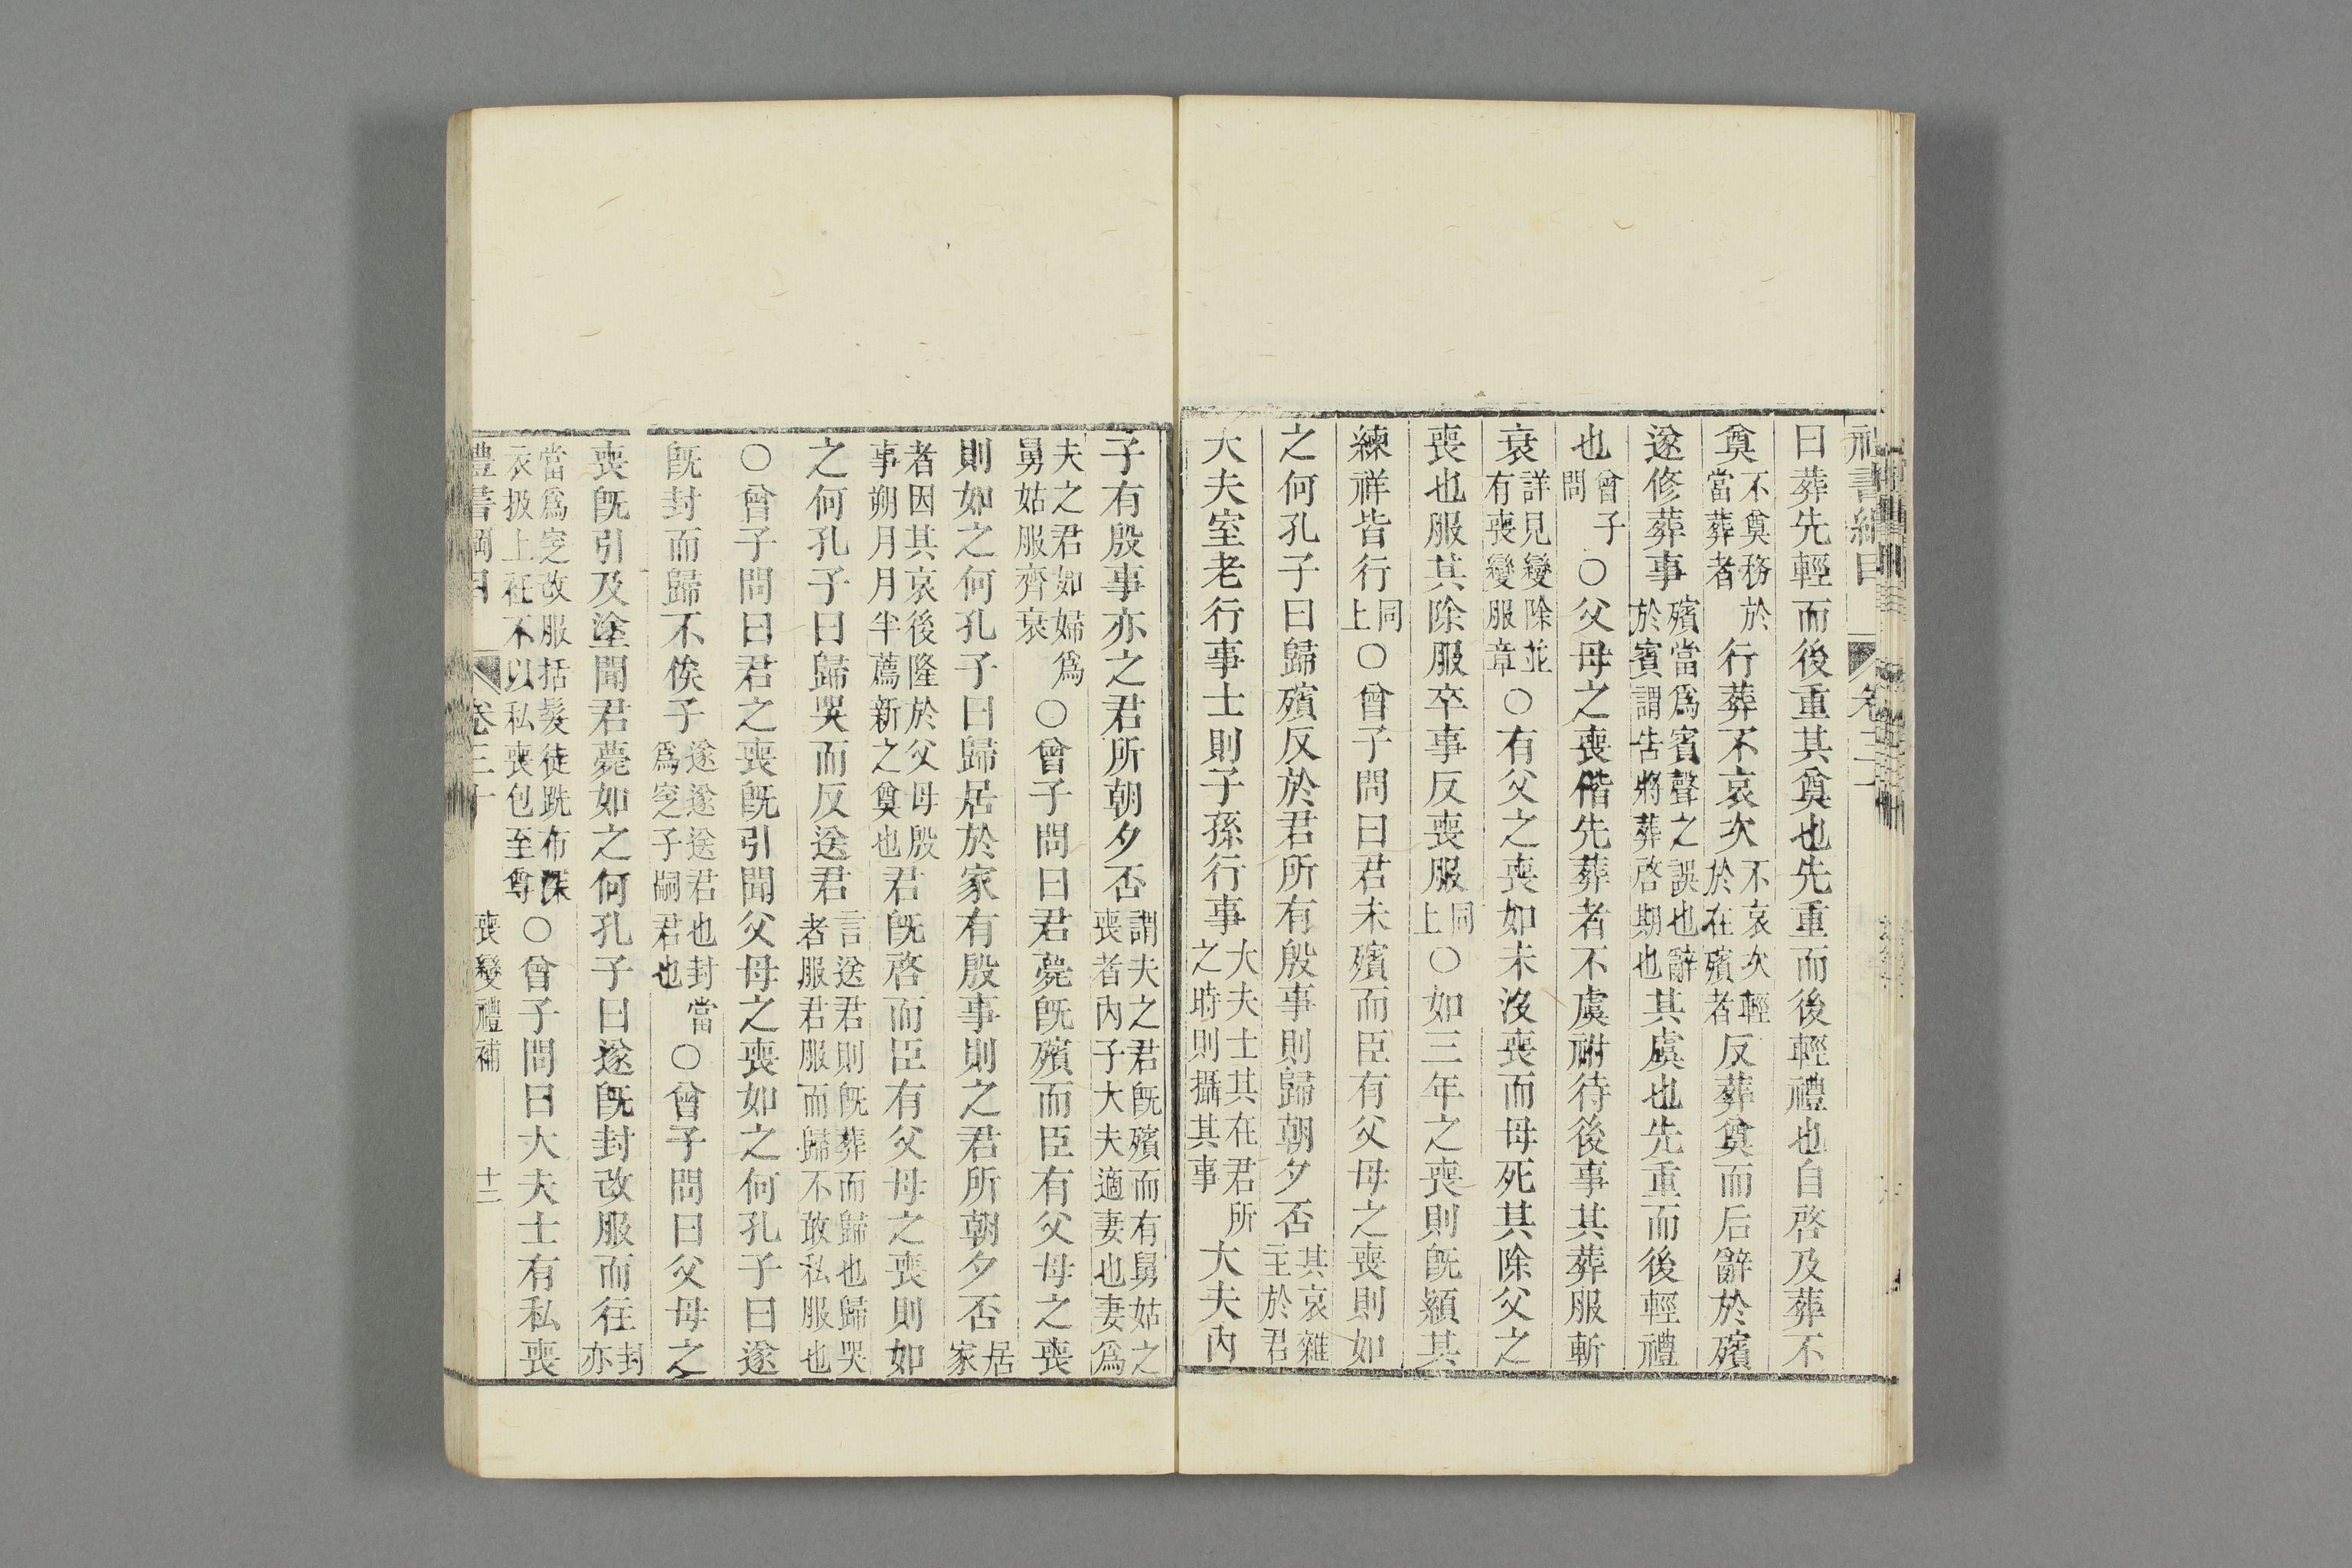 曰葬先輕而後重其奠也先重而後輕禮也自啓及葬不
奠不奠務於當葬者行葬不哀次不哀次輕於在殯者反葬奠而后辭於殯
遂修葬事殯當爲賓聲之誤也辭於賓謂告將葬啓期也其虞也先重而後輕禮
也曾子問○父母之喪偕先葬者不虞祔待後事其葬服斬
衰詳見變除並有喪變服章○有父之喪如未沒喪而母死其除父之
喪也服其除服卒事反喪服同上○如三年之喪則既顈其
練祥皆行同上○曾子問曰君未殯而臣有父母之喪則如
之何孔子曰歸殯反於君所有殷事則歸朝夕否其哀雜主於君
大夫室老行事士則子孫行事大夫士其在君所之時則攝其事大夫內
子有殷事亦之君所朝夕否謂夫之君既殯而有舅姑之喪者內子大夫適妻也妻爲
夫之君如婦爲舅姑服齊衰○曾子問曰君薨既殯而臣有父母之喪
則如之何孔子曰歸居於家有殷事則之君所朝夕否居家
者因其哀後隆於父母殷事朔月月半薦新之奠也君既啓而臣有父母之喪則如
之何孔子曰歸哭而反送君言送君則既葬而歸也歸哭者服君服而歸不敢私服也
○曾子問曰君之喪既引聞父母之喪如之何孔子曰遂
既封而歸不俟子遂遂送君也封當爲窆子嗣君也○曾子問曰父母之
喪既引及塗聞君薨如之何孔子曰遂既封改服而往封亦
當爲窆改服括髮徒跣布深衣扱上衽不以私喪包至尊○曾子問曰大夫士有私喪
禮書綱目 卷三十 喪變禮補 十二